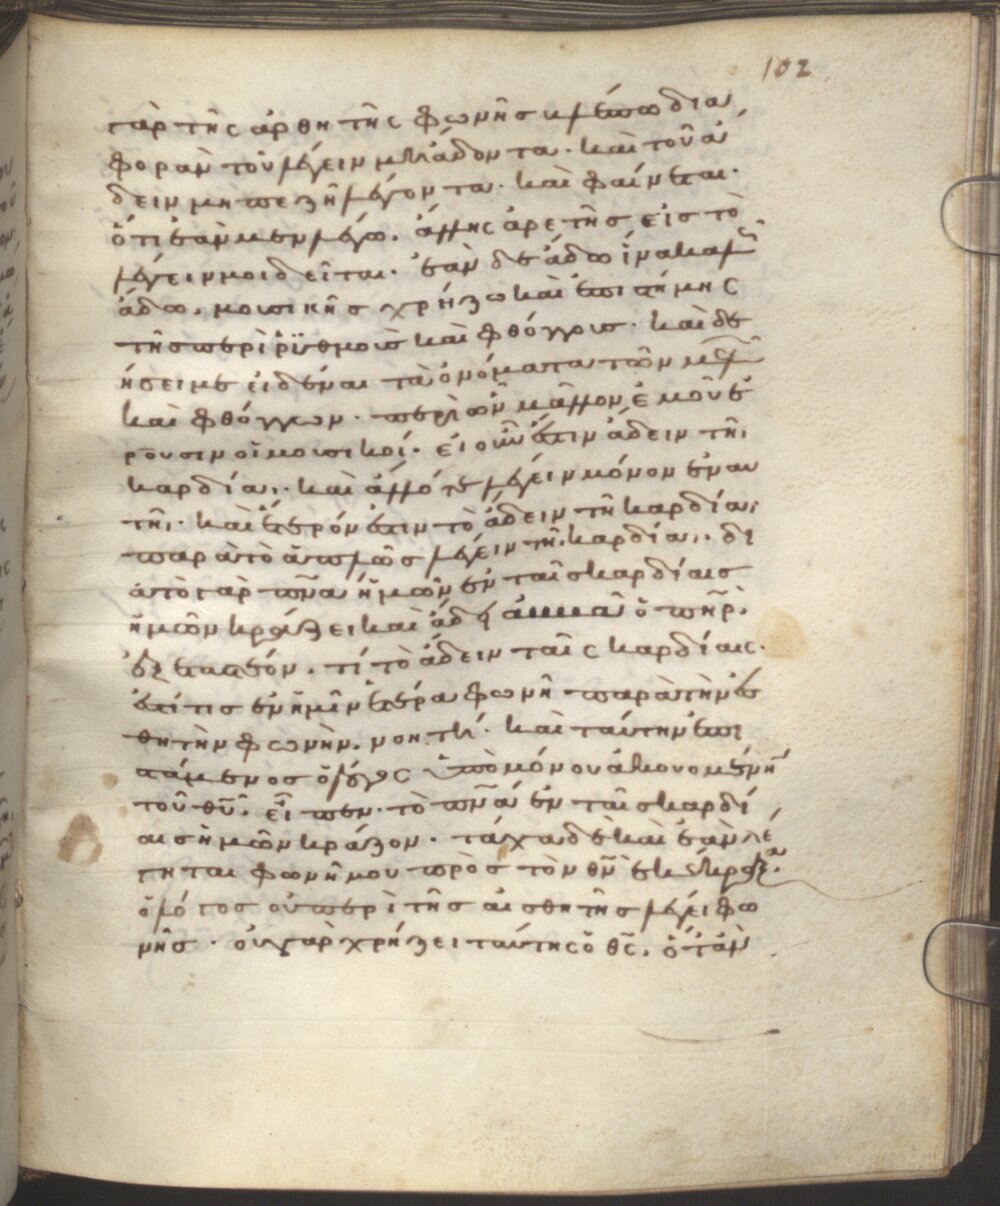 102
γὰρ τῆς αἰσθητῆς φωνῆς βλέπω δια
φορὰν τοῦ λέγειν μὴ ἄδοντα· καὶ τοῦ ἄ
δειν μὴ πεζῆ λέγοντα· καὶ φαίνεται·
ὅτι ἐὰν μὲν λέγω. ἄλλης ἀρετῆς εἰς τὸ
λέγειν μοι δεῖται· ἐὰν δὲ ἄδω ἵνα καλῶς
ἄδω. μουσικῆς χρήζω καὶ ἐπιστήμης
τῆς περὶ ῥυθμοὺς καὶ φθόγγους· καὶ δε
ήσει με εἰδέναι τὰ ὀνόματα τῶν μελῶν
καὶ φθόγγων· περὶ ὧν μᾶλλον ἐμοῦ ἐ
ροῦσιν οἱ μουσικοί· εἰ οὖν ἔστιν ἄδειν τῆι
καρδίαι· καὶ ἄλλό τὸ λέγειν μόνον ἐν αυ
τῆι· καὶ ἕτερόν ἐστιν τὸ ἄδειν τῆ καρδίαι
παρὰ τὸ ἁπλῶς λέγειν τῆι καρδίαι· δι
ὰ τὸ γὰρ πνα ἡμῶν ἐν ταῖς καρδίαις
ἡμῶν κράζει καὶ ἄδει ἀββᾶ ὁ πηρ.
ἐξεταστέον. τί τὸ ἄδειν ταῖς καρδίαις.
ἐστί τις ἐν ἡμῖν ἑτέρα φωνὴ παρὰ τὴν αἰσ
θητὴν φωνὴν. νοητή. καὶ ταύτην ἐπι
στάμενος ὁ λόγος ὑπὸ μόνου ἀκουομένην
τοῦ θυ. εἶπεν· τὸ πνα ἐν ταῖς καρδί
αις ἡμῶν κράζον· τάχα δὲ καὶ ἐὰν λέ
γηται φωνῆ μου πρὸς τὸν θν ἐκέκραξα
ὁ λόγος οὐ περὶ τῆς αἰσθητῆς λέγει φω
νῆς· οὐ γὰρ χρήζει ταύτης ὁ θς. ὅταν